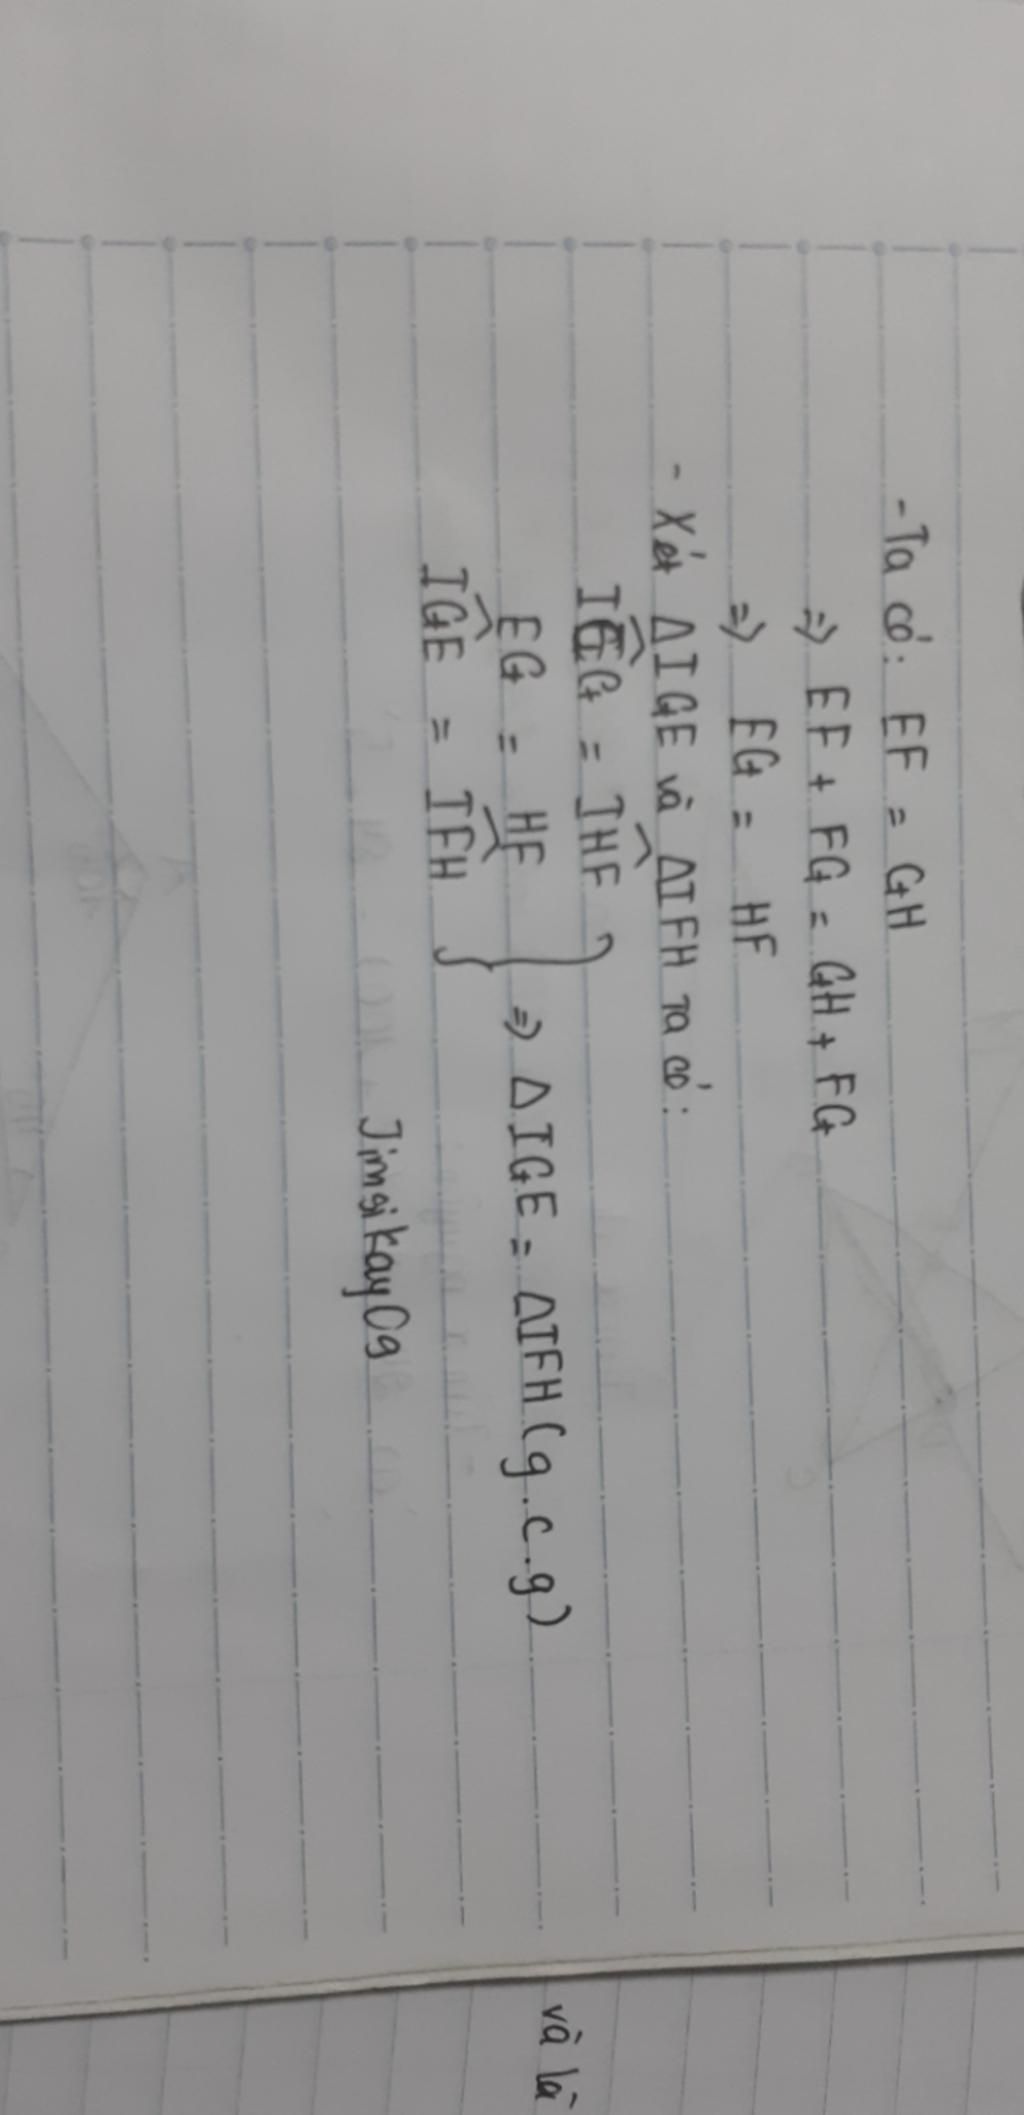 - Ta có: EF = GH
=> EF + FG = GH + FG
=> EG = HF
- Xét ΔIGE và ΔIFH ta có:
IEG = IHF
EG = HF
IGE = IFH
=> ΔIGE = ΔIFH (g.c.g)
JinsikayOg
và là